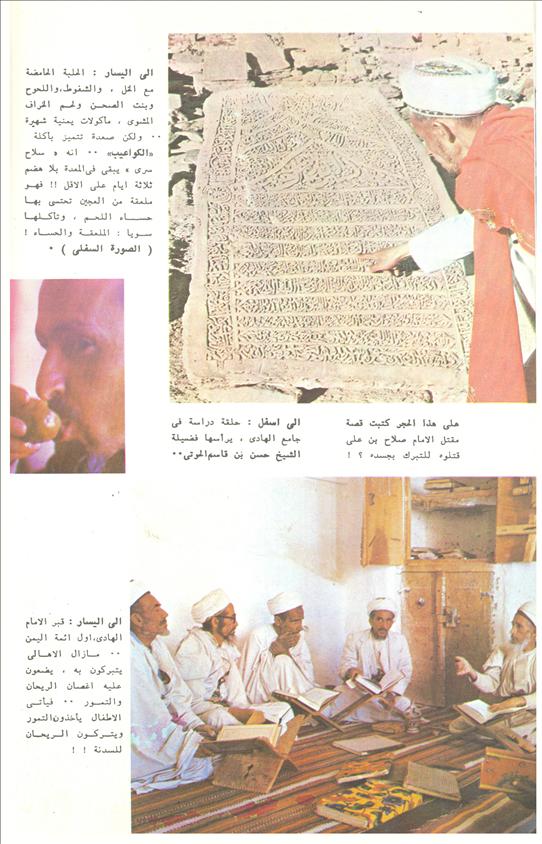 الى اليسار : الحلبة الحامضة
مع الخل ، والشفوط،واللحوح
وبنت الصحن ولحم الخراف
المشوى ، ماكولات يمنية شهيرة
٠٠ ولكن صعدة تتميز باكلة
«الكواعيب» ٠٠ انه « سلاح
سرى » يبقى فى المعدة بلا هضم
ثلاثة ايام على الاقل !! فهو
ملعقة من العجين تحتسى بها
حساء اللحم ، وتاكلها
سويا : الملعقة والحساء !
( الصورة السفلى ) ٠
على هذا الحجر كتبت قصة
مقتل الامام صلاح بن على
قتلوه للتبرك بجسده ؟ !
الى اسفل : حلقة دراسة فى
جامع الهادى ، يرأسها فضيلة
الشيخ حسن بن قاسم الحوتى٠٠
الى اليسار : قبر الامام
الهادى،اول ائمة اليمن
٠٠ مازال الاهالى
يتبركون به ، يضعون
عليه اغصان الريحان
والتمور ٠٠ فيأتى
الاطفال يأخذون التمور
ويتركون الريحان
للسدنة ! !